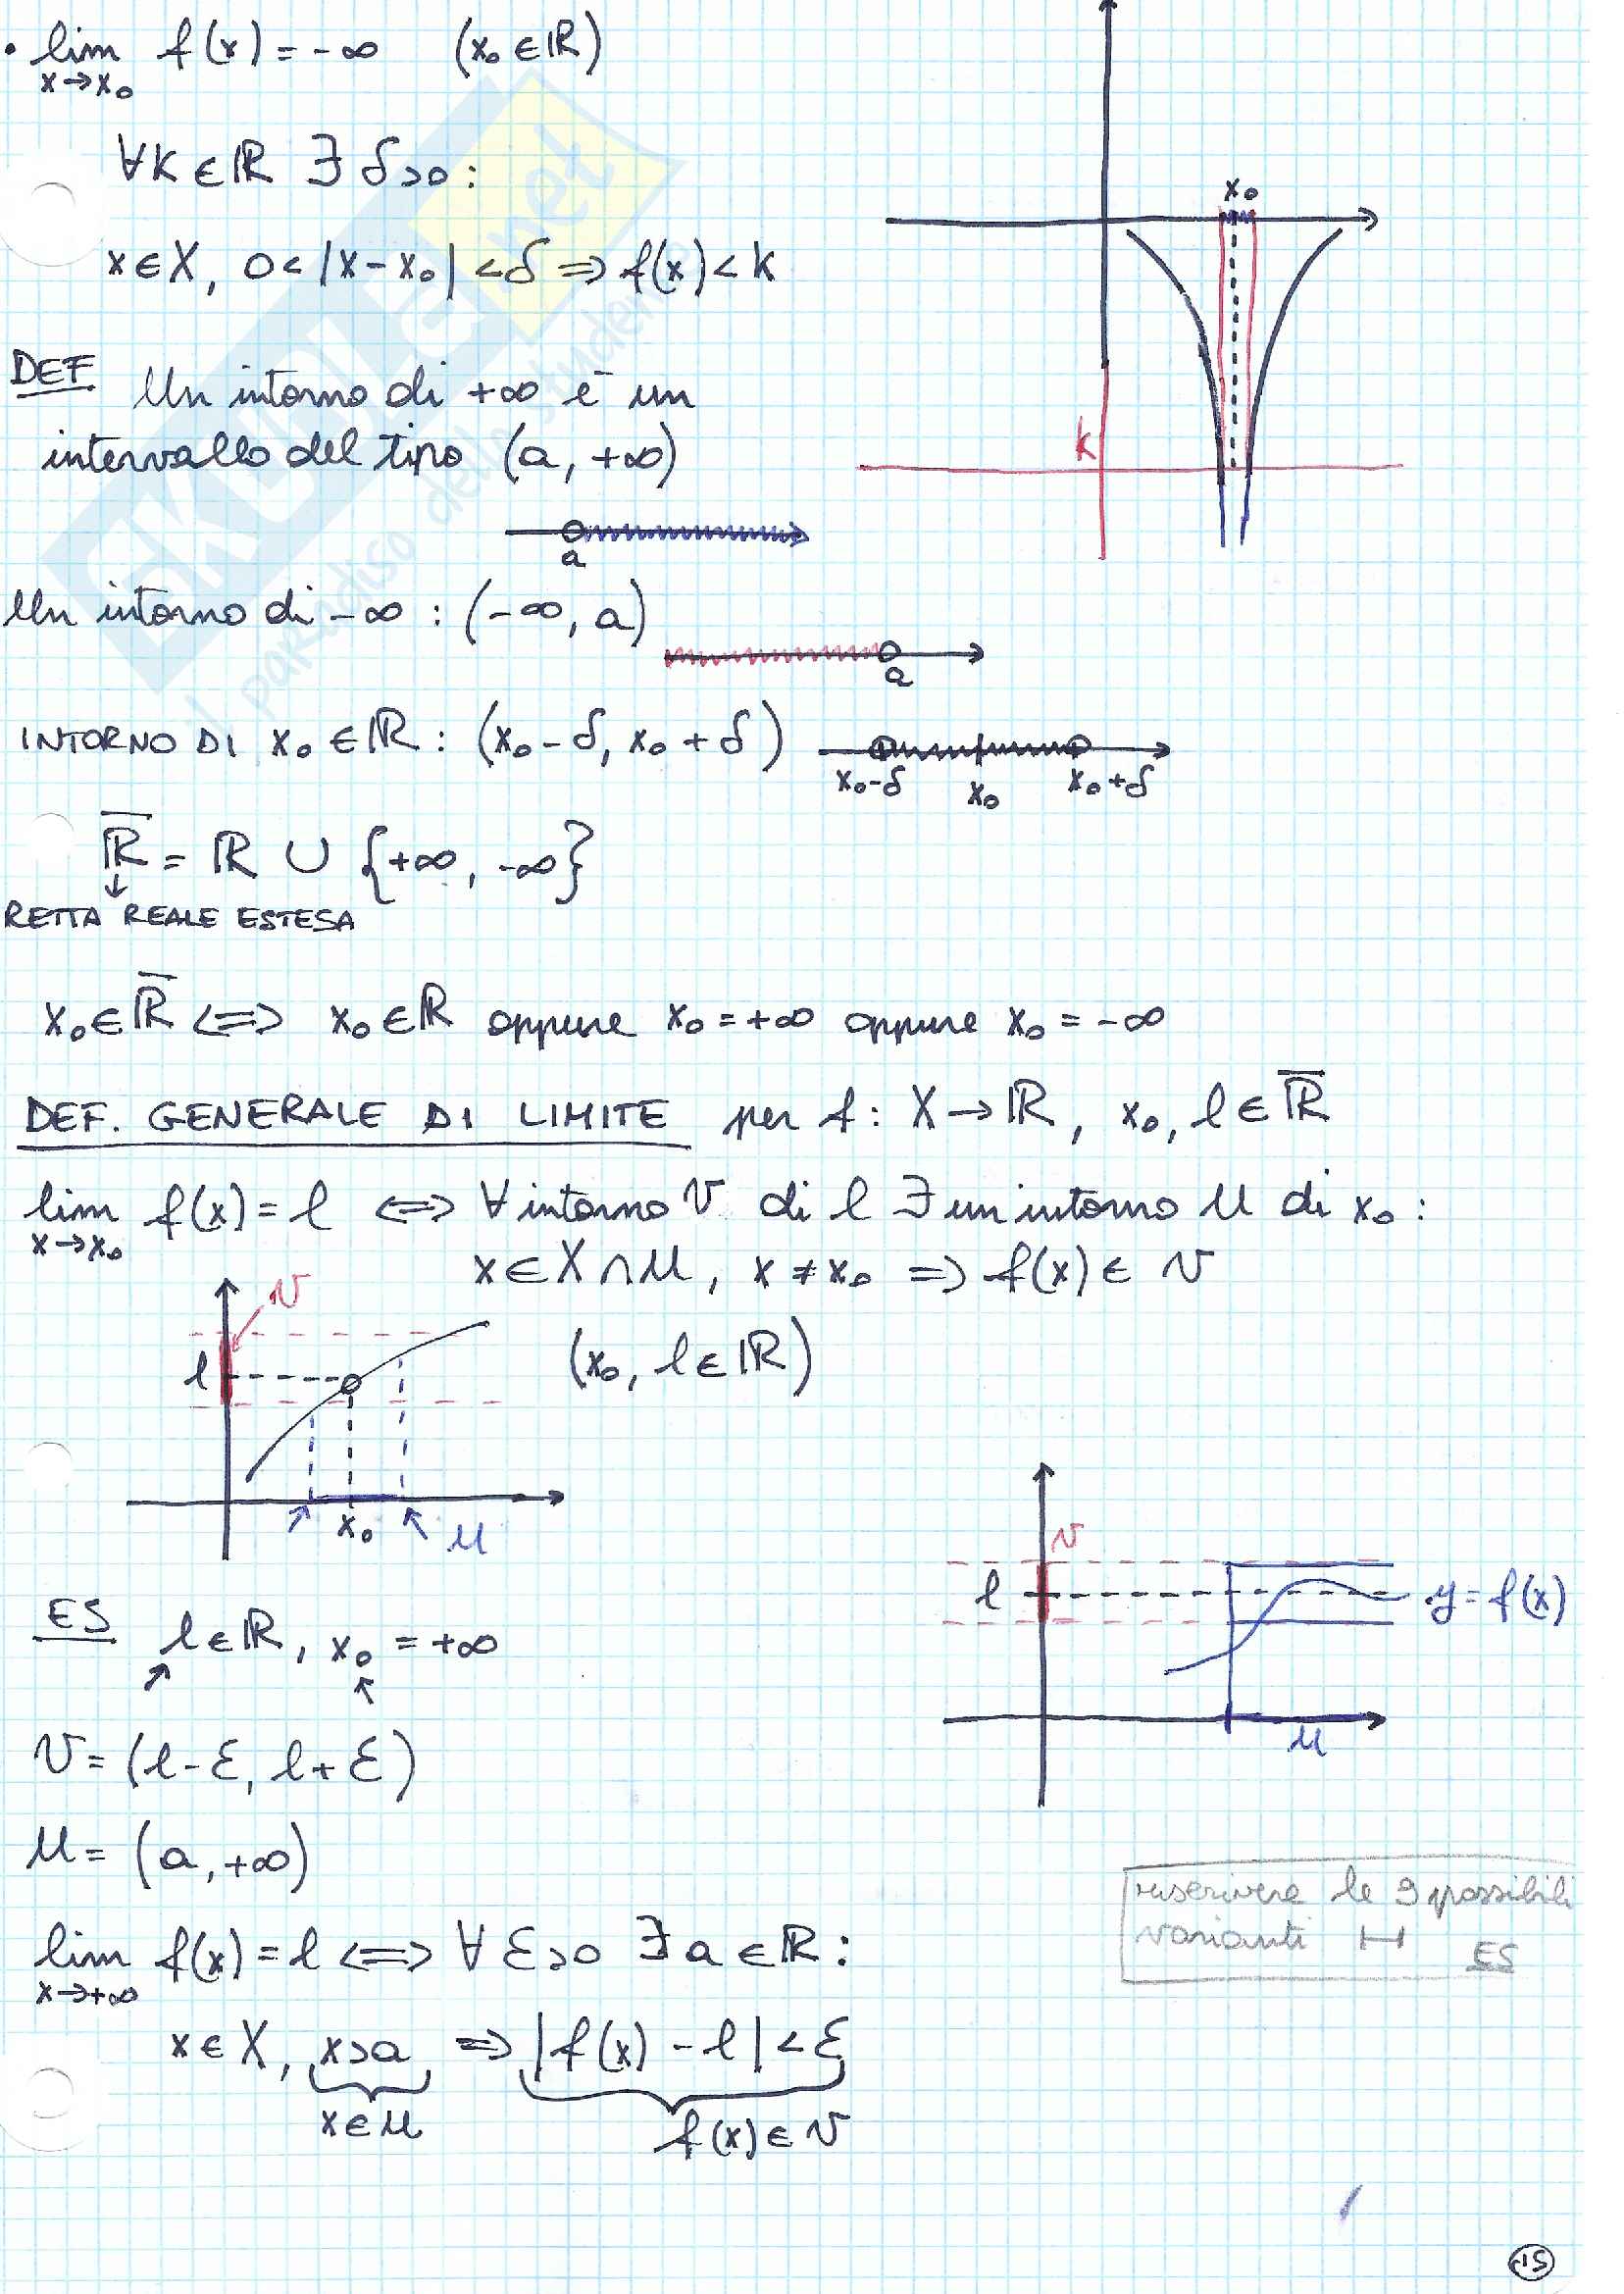 • lim f(x) = -∞ (x₀ ∈ ℝ)
x→x₀
∀k ∈ ℝ ∃ δ>0 :
x ∈ X, 0 < |x - x₀| < δ ⇒ f(x) < k
x₀
k
DEF Un intorno di +∞ è un
intervallo del tipo (a, +∞)
a
Un intorno di -∞ : (-∞, a)
a
INTORNO DI x₀ ∈ ℝ : (x₀ - δ, x₀ + δ)
x₀-δ x₀ x₀+δ
ℝ̅ = ℝ ∪ {+∞, -∞}
↓
RETTA REALE ESTESA
x₀ ∈ ℝ̅ ⇔ x₀ ∈ ℝ oppure x₀ = +∞ oppure x₀ = -∞
DEF. GENERALE DI LIMITE per f : X → ℝ, x₀, l ∈ ℝ̅
lim f(x) = l ⇔ ∀ intorno V di l ∃ un intorno U di x₀ :
x→x₀
x ∈ X ∩ U, x ≠ x₀ ⇒ f(x) ∈ V
V
l
x₀
U
(x₀, l ∈ ℝ)
V
l
y = f(x)
U
ES l ∈ ℝ, x₀ = +∞
V = (l-ε, l+ε)
U = (a, +∞)
riscrivere le 9 possibili
varianti H ES
lim f(x) = l ⇔ ∀ ε>0 ∃ a ∈ ℝ :
x→+∞
x ∈ X, x>a ⇒ |f(x) - l| < ε
x ∈ U f(x) ∈ V
15
SKUOLA.net
il paradiso dello studente